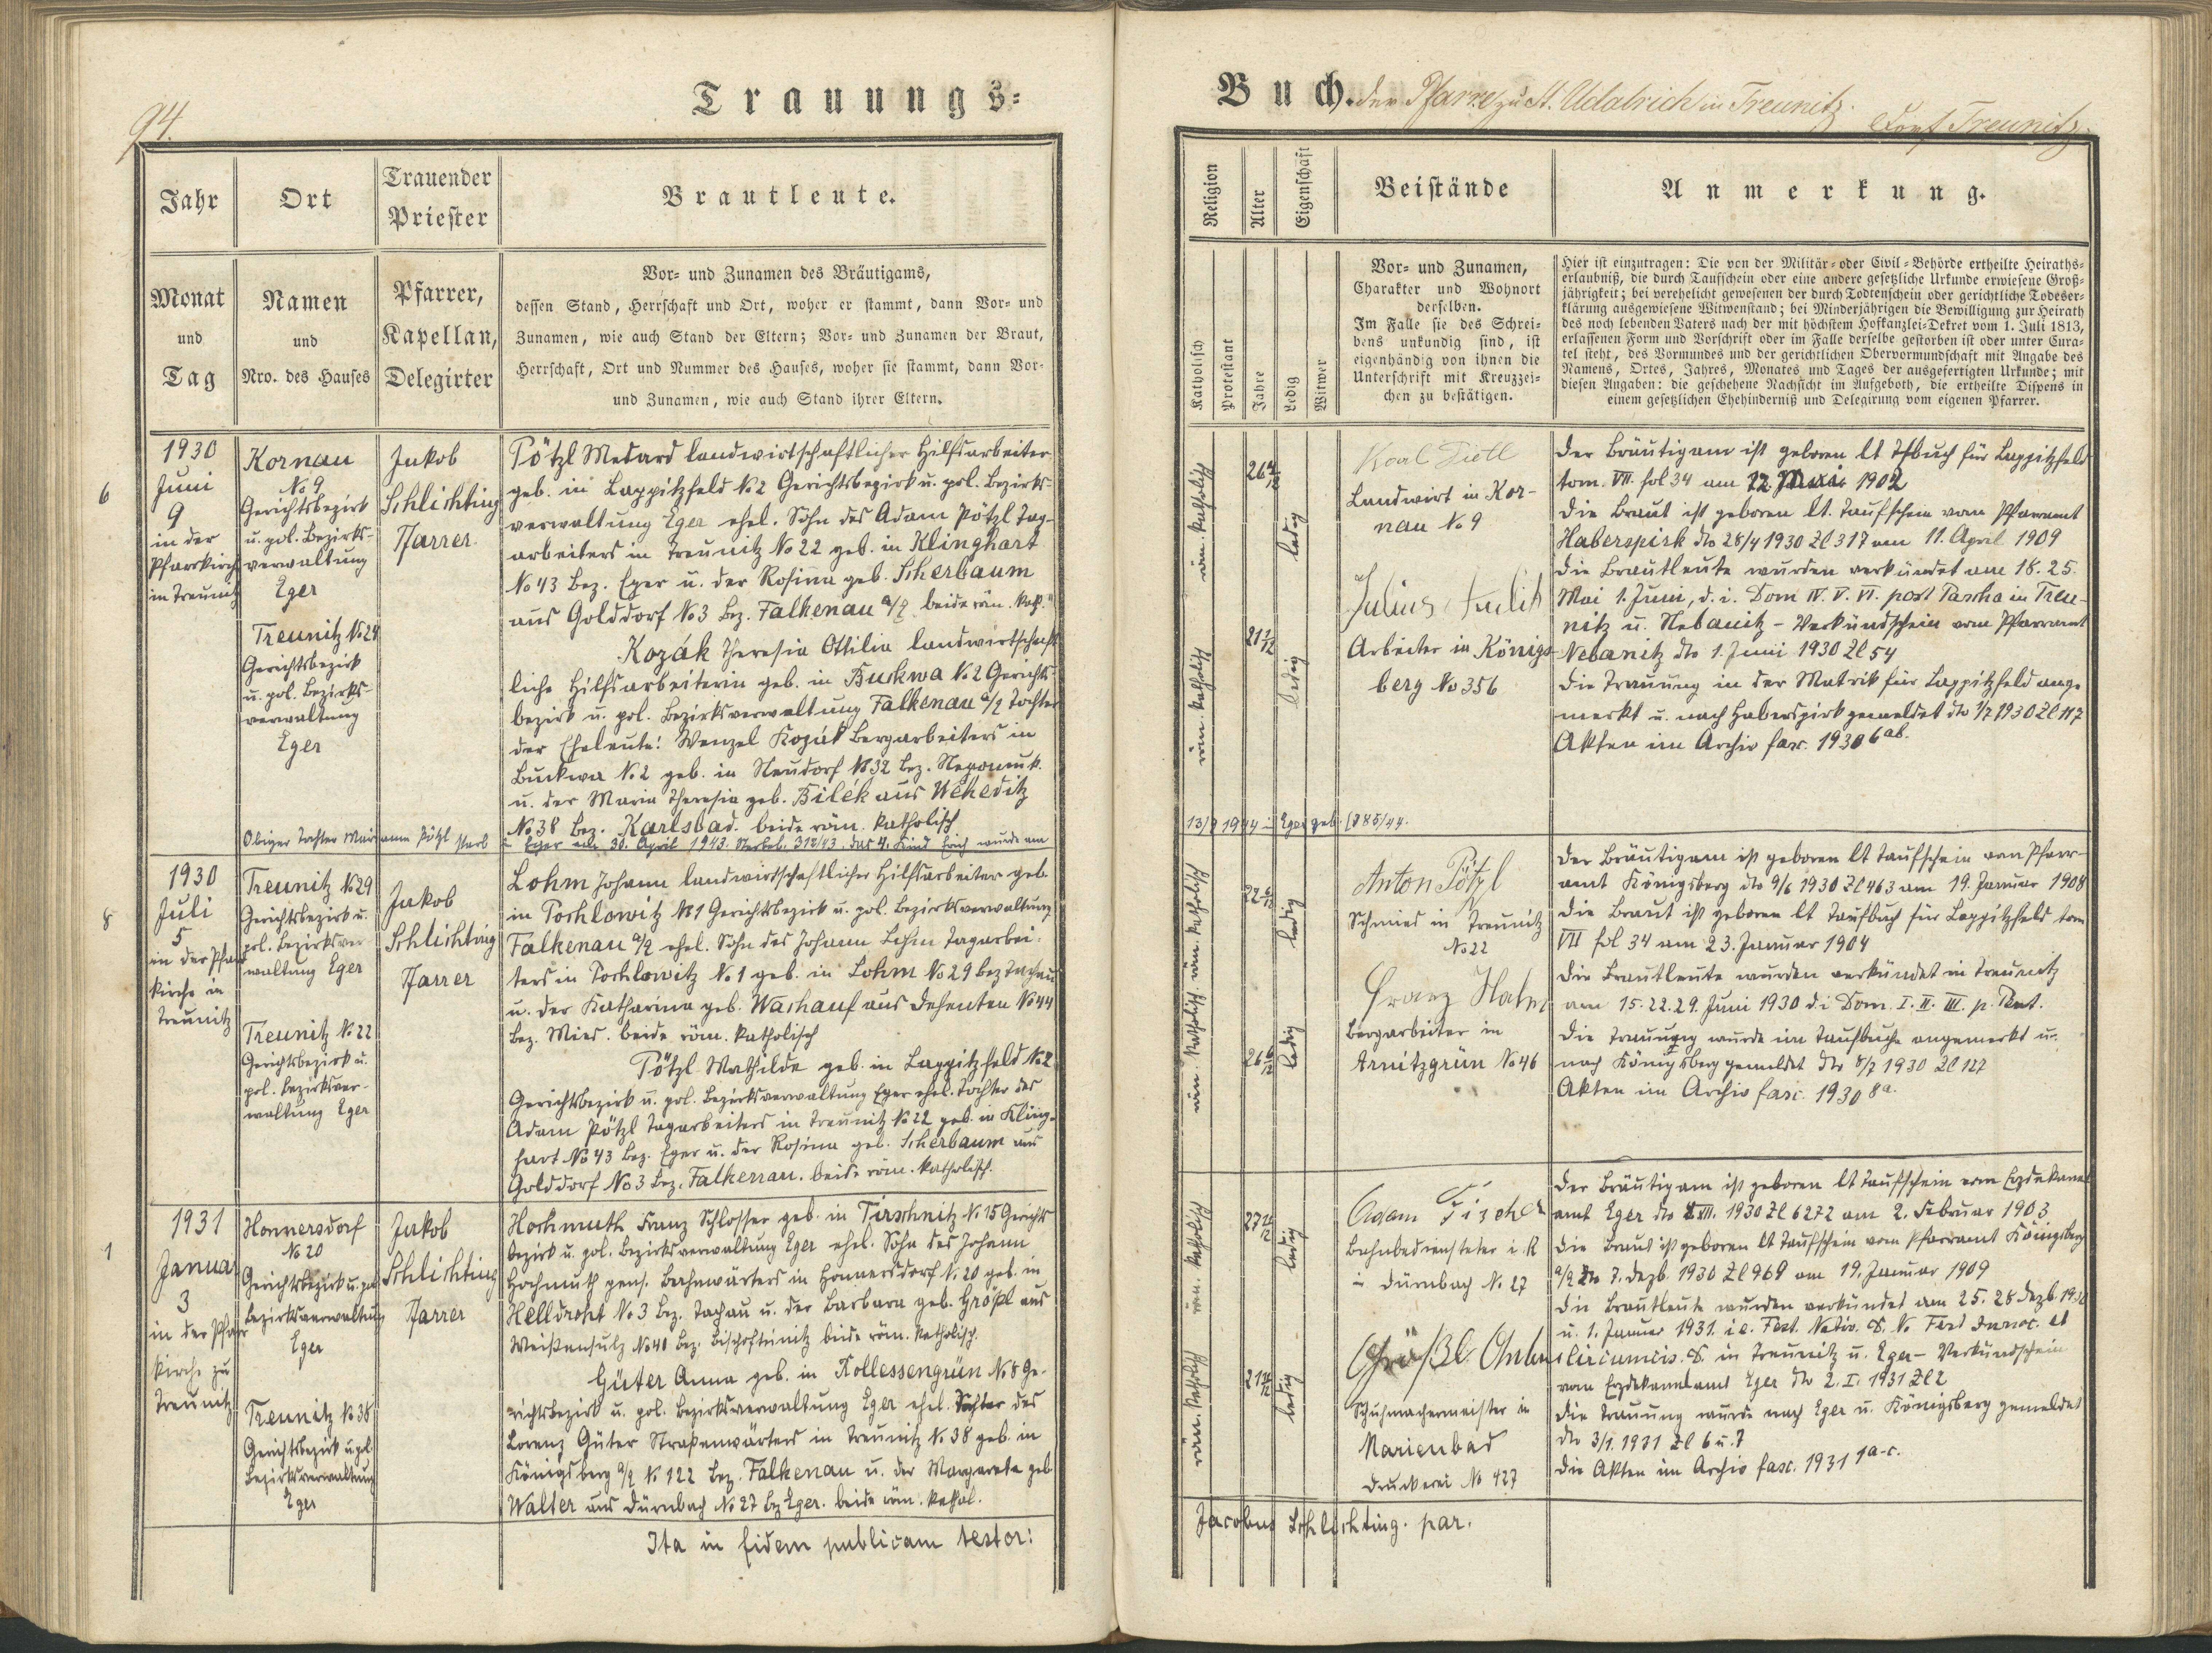 94.
Trauungs-
Jahr
Monat
und
Tag
Ort
Namen
und
Nro. des Hauses
Trauender
Priester
Pfarrer,
Kapellan,
Delegirter
Brautleute.
Vor- und Zunamen des Bräutigams,
dessen Stand, Herrschaft und Ort, woher er stammt, dann Vor- und
Zunamen, wie auch Stand der Eltern; Vor- und Zunamen der Braut,
Herrschaft, Ort und Nummer des Hauses, woher sie stammt, dann Vor-
und Zunamen, wie auch Stand ihrer Eltern.
6
1930
Juni
9
in der
Pfarrkirche
in Treunitz
Kornau
No 9
Gerichtsbezirk
u. pol. Bezirks-
verwaltung
Eger
Treunitz No 24
Gerichtsbezirk
u. pol. Bezirks-
verwaltung
Eger
Jakob
Schlichting
Pfarrer.
Pötzl Medard landwirtschaftlicher Hilfsarbeiter
geb. in Lappitzfeld No 2 Gerichtsbezirk u. pol. Bezirks-
verwaltung Eger ehel. Sohn des Adam Pötzl Tag-
arbeiters in Treunitz No 22 geb. in Klinghart
No 43 Bez. Eger u. der Rosina geb. Scherbaum
aus Golddorf No 3 Bez. Falkenau a/E beide röm. kath.
Kozák Theresia Ottilia landwirtschaft-
liche Hilfsarbeiterin geb. in Buckwa No 2 Gerichts-
bezirk u. pol. Bezirksverwaltung Falkenau a/E Tochter
der Eheleute: Wenzel Kozák Bergarbeiters in
Buckwa No 2 geb. in Neudorf No 32 Bez. Nepomuk
u. der Maria Theresia geb. Bilek aus Weheditz
No 38 Bez. Karlsbad. beide röm. katholisch
Obiger Tochter Marianne Pötzl starb in Eger am 30. April 1943. Sterbeb. 312/43. Das 4. Kind Erich wurde am
8
1930
Juli
5
in der Pfarr
kirche in
Treunitz
Treunitz No 29
Gerichtsbezirk u.
pol. Bezirksver
waltung Eger
Treunitz No 22
Gerichtsbezirk u.
pol. Bezirksver-
waltung Eger
Jakob
Schlichting
Pfarrer
Lohm Johann landwirtschaftlicher Hilfsarbeiter geb.
in Pochlowitz No 1 Gerichtsbezirk u. pol. Bezirksverwaltung
Falkenau a/E ehel. Sohn des Johann Lohm Tagarbei-
ters in Pochlowitz No 1 geb. in Lohm No 29 Bez Tachau
u. der Katharina geb. Waschauf aus Dehenten No 44
Bez. Mies. beide röm. katholisch
Pötzl Mathilde geb. in Lappitzfeld No 2
Gerichtsbezirk u. pol. Bezirksverwaltung Eger ehel. Tochter des
Adam Pötzl Tagarbeiters in Treunitz No 22 geb. in Kling-
hart No 43 Bez. Eger u. der Rosina geb. Scherbaum aus
Golddorf No 3 Bez. Falkenau. beide röm. katholisch.
1
1931
Januar
3
in der Pfarr
kirche zu
Treunitz
Honnersdorf
No 20
Gerichtsbezirk u. pol
Bezirksverwaltung
Eger
Treunitz No 38
Gerichtsbezirk u. pol.
Bezirksverwaltung
Eger
Jakob
Schlichting
Pfarrer
Hochmuth Franz Schlosser geb. in Tirschnitz No 15 Gerichts
bezirk u. pol. Bezirksverwaltung Eger ehel. Sohn des Johann
Hochmuth pens. Bahnwärters in Honnersdorf No 20 geb. in
Helldroht No 3 Bez. Tachau u. der Barbara geb. Größl aus
Weißensulz No 40 Bez. Bischofteinitz beide röm. katholisch.
Güter Anna geb. in Kollessengrün No 8 Ge-
richtsbezirk u. pol. Bezirksverwaltung Eger ehel. Tochter des
Lorenz Güter Straßenwärters in Treunitz No 38 geb. in
Königsberg a/E No 122 Bez. Falkenau u. der Margareta geb.
Walter aus Dürnbach No 27 Bez Eger. beide röm. kathol.
Ita in fidem publicam testor:
Buch. der Pfarre zu St. Udalrich in Treunitz.
Dorf Treunitz.
Religion
Katholisch
Protestant
Alter
Jahre
Eigenschaft
Ledig
Witwer
Beistände
Vor- und Zunamen,
Charakter und Wohnort
derselben.
Im Falle sie des Schrei-
bens unkundig sind, ist
eigenhändig von ihnen die
Unterschrift mit Kreuzzei-
chen zu bestätigen.
Anmerkung.
Hier ist einzutragen: Die von der Militär- oder Civil-Behörde ertheilte Heiraths-
erlaubniß, die durch Taufschein oder eine andere gesetzliche Urkunde erwiesene Groß-
jährigkeit; bei verehelicht gewesenen der durch Todtenschein oder gerichtliche Todeser-
klärung ausgewiesene Witwenstand; bei Minderjährigen die Bewilligung zur Heirath
des noch lebenden Vaters nach der mit höchstem Hofkanzlei-Dekret vom 1. Juli 1813,
erlassenen Form und Vorschrift oder im Falle derselbe gestorben ist oder unter Cura-
tel steht, des Vormundes und der gerichtlichen Obervormundschaft mit Angabe des
Namens, Ortes, Jahres, Monates und Tages der ausgefertigten Urkunde; mit
diesen Angaben: die geschehene Nachsicht im Aufgeboth, die ertheilte Dispens in
einem gesetzlichen Ehehinderniß und Delegirung vom eigenen Pfarrer.
röm. katholisch
röm. katholisch
ledig
21 1/12
ledig
Landwirt in Kor-
nau No 9
Julius
Arbeiter in Königs-
berg No 356
Der Bräutigam ist geboren lt Tfbuch für Lappitzfeld
tom. VII. fol 34 am 12. 1902
Die Braut ist geboren lt. Taufschein vom Pfarramt
Haberspirk dto 28/4 1930 Zl 317 am 11. April 1909
Die Brautleute wurden verkündet am 18. 25.
Mai 1. Juni, d. i. Dom IV. V. VI. post Pascha in Treu-
nitz u. Nebanitz - Verkündschein vom Pfarramt
Nebanitz dto 1. Juni 1930 Zl 54
Die Trauung in der Matrik für Lappitzfeld ange
merkt u. nach Haberspirk gemeldet dto 1/7 1930 Zl 117
Akten im Archiv fasc. 1930 6ab.
13/9 1944 in Eger geb. [785/44.
röm. katholisch. röm. katholisch
22 5/12
ledig
26 6/12
ledig
Anton Pötzl
Schmied in Treunitz
No 22
Franz Hahn
Bergarbeiter in
Arnitzgrün No 46
Der Bräutigam ist geboren lt Taufschein vom Pfarr-
amt Königsberg dto 9/6 1930 Zl 463 am 19. Januar 1908
Die Braut ist geboren lt Taufbuch für Lappitzfeld tom
VII fol 34 am 23. Januar 1904
Die Brautleute wurden verkündet in Treunitz
am 15. 22. 29. Juni 1930 d. i Dom. I. II. III. p. Pent.
Die Trauung wurde im Taufbuche angemerkt u.
nach Königsberg gemeldet dto 5/7 1930 Zl 127
Akten im Archiv fasc. 1930 8a.
röm. katholisch
röm. katholisch
27 11/12
ledig
21 11/12
ledig
Adam Fischer
Bahnbediensteter i. R
in Dürnbach No 27
Größl
Schuhmachermeister in
Marienbad
Druckerei No 427
Der Bräutigam ist geboren lt Taufschein vom Erzdekanal
amt Eger dto XII. 1930 Zl 6272 am 2. Februar 1903
Die Braut ist geboren lt Taufschein vom Pfarramt Königsberg
a/E dto 7. Dezb. 1930 Zl 969 am 19. Januar 1909
Die Brautleute wurden verkündet am 25. 28 Dezb. 1930
u. 1. Januar 1931. i. e. Fest. Nativ. D. N. Fest Innoc. et
Circumcis. D. in Treunitz u. Eger - Verkündschein
vom Erzdekanalamt Eger dto 2. I. 1931 Zl 2
Die Trauung wurde nach Eger u. Königsberg gemeldet
dto 3/1. 1931 Zl 6 u. 7
Die Akten im Archiv fasc. 1931 1a-c.
Jacobus Schlichting. par.